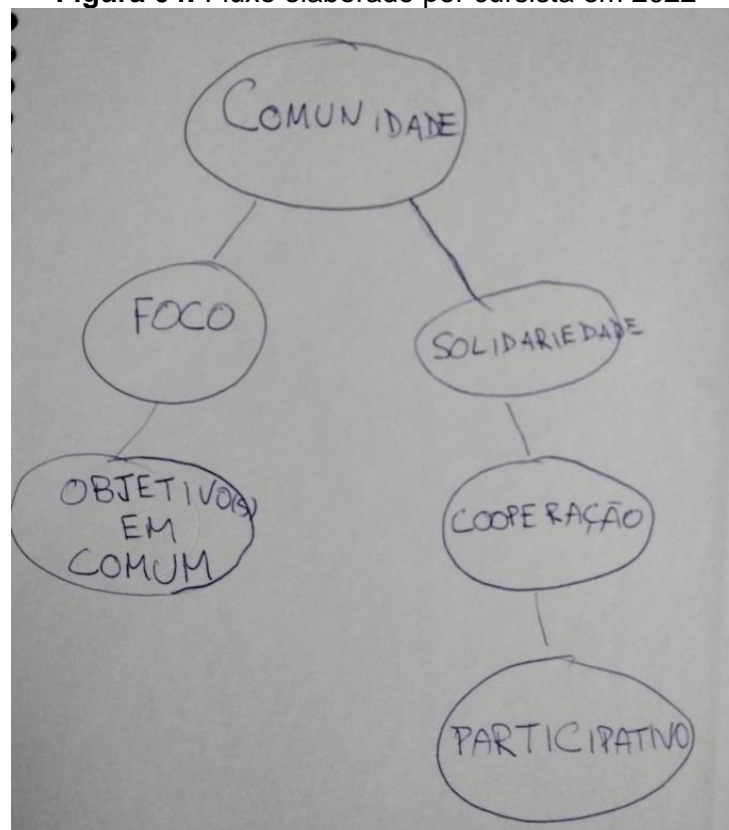 COMUNIDADE
FOCO
SOLIDARIEDADE
OBJETIVO(S)
EM
COMUM
COOPERAÇÃO
PARTICIPATIVO